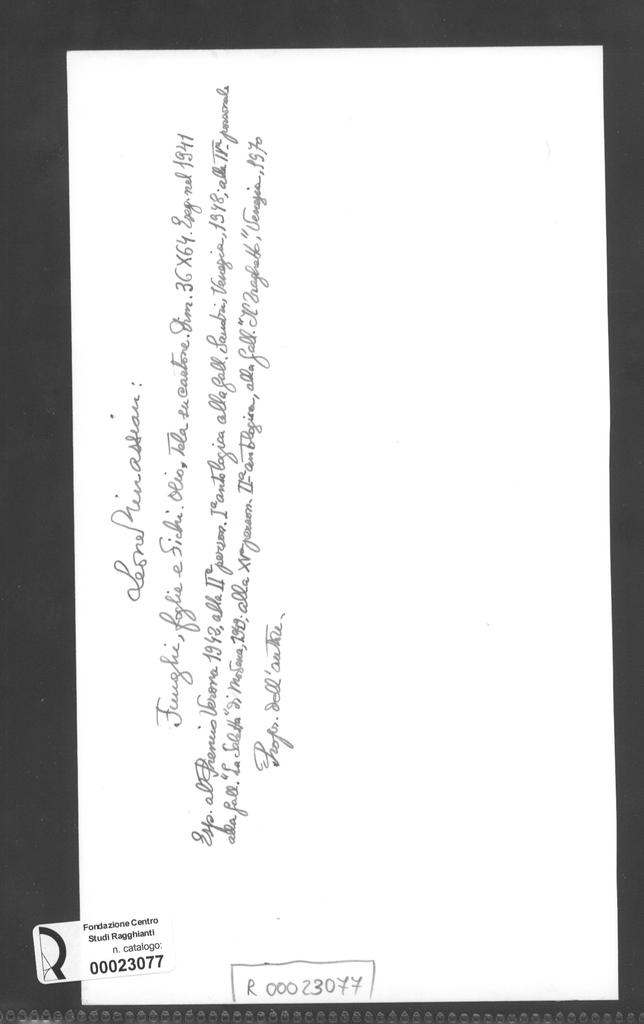 Leone Minassian:
Funghi, foglie e Fichi. Olio, tela su cartone. Dim. 36X64. Eseg. nel 1941
Esp. al Premio Verona 1943, alla IIª person. Iª antologica alla Gall. Sandri, Venezia, 1948; alla IVª personale
alla Gall. "La Saletta" di Modena, 1949; alla XVª person. IIª antologica, alla Gall. "Il Traghetto", Venezia, 1970
Propr. dell'autore.
Fondazione Centro
Studi Ragghianti
n. catalogo:
00023077
R 00023077